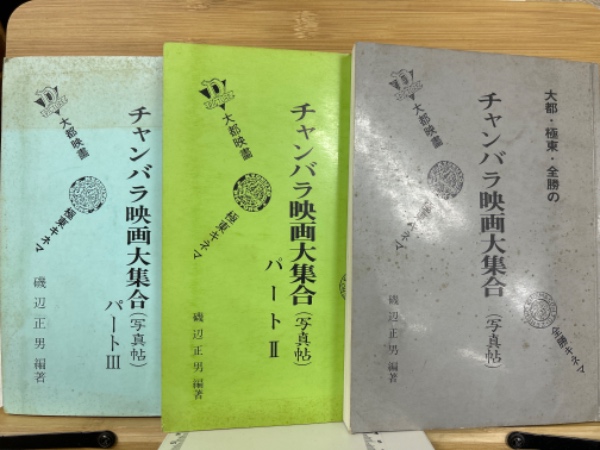 大都・極東・全勝の
チャンバラ映画大集合
(写真帖)
大都映畫
極東キネマ
全勝キネマ
磯辺正男編著
チャンバラ映画大集合(写真帖)
パートⅡ
大都映畫
極東キネマ
磯辺正男編著
チャンバラ映画大集合(写真帖)
パートⅢ
大都映畫
極東キネマ
磯辺正男編著